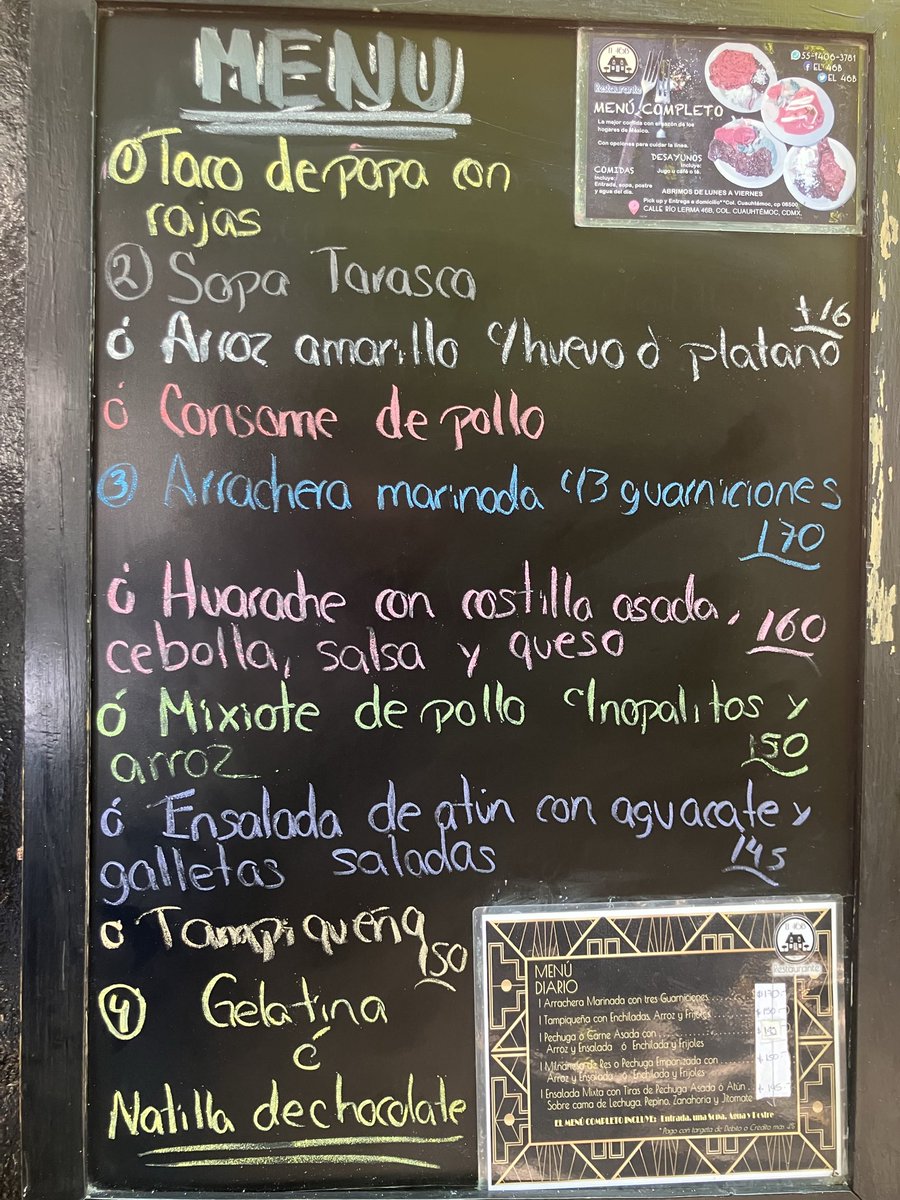 MENU
① Taco de papa con
rajas
② Sopa Tarasca
+16
ó Arroz amarillo c/huevo ó platano
ó Consome de pollo
③ Arrachera marinada c/3 guarniciones
170
ó Huarache con costilla asada,
cebolla, salsa y queso
160
ó Mixiote de pollo c/nopalitos y
arroz
150
ó Ensalada de atún con aguacate y
galletas saladas
145
o Tampiqueña
150
④ Gelatina
ó
Natilla de chocolate
El 46B
Restaurante
55-1406-3781
EL 46B
EL 46B
MENÚ COMPLETO
La mejor comida con el sazón de los
hogares de México.
Con opciones para cuidar la línea.
DESAYUNOS
Incluye:
Jugo u café o té.
COMIDAS
Incluye:
Entrada, sopa, postre
y agua del día.
ABRIMOS DE LUNES A VIERNES
Pick up y Entrega a domicilio**Col. Cuauhtémoc, cp 06500
CALLE RÍO LERMA 46B, COL. CUAUHTÉMOC, CDMX.
El 46B
restaurante
MENÚ
DIARIO
1 Arrachera Marinada con tres Guarniciones $170
1 Tampiqueña con Enchiladas, Arroz y Frijoles $150
1 Pechuga ó Carne Asada con
Arroz y Ensalada ó Enchilada y Frijoles
1 Milanesa de Res o Pechuga Empanizada con $150
Arroz y Ensalada ó Enchilada y Frijoles
1 Ensalada Mixta con Tiras de Pechuga Asada ó Atún
Sobre cama de Lechuga, Pepino, Zanahoria y Jitomate
EL MENÚ COMPLETO INCLUYE: Entrada, una Sopa, Agua y Postre
*Pago con targeta de Debito o Credito mas 4%